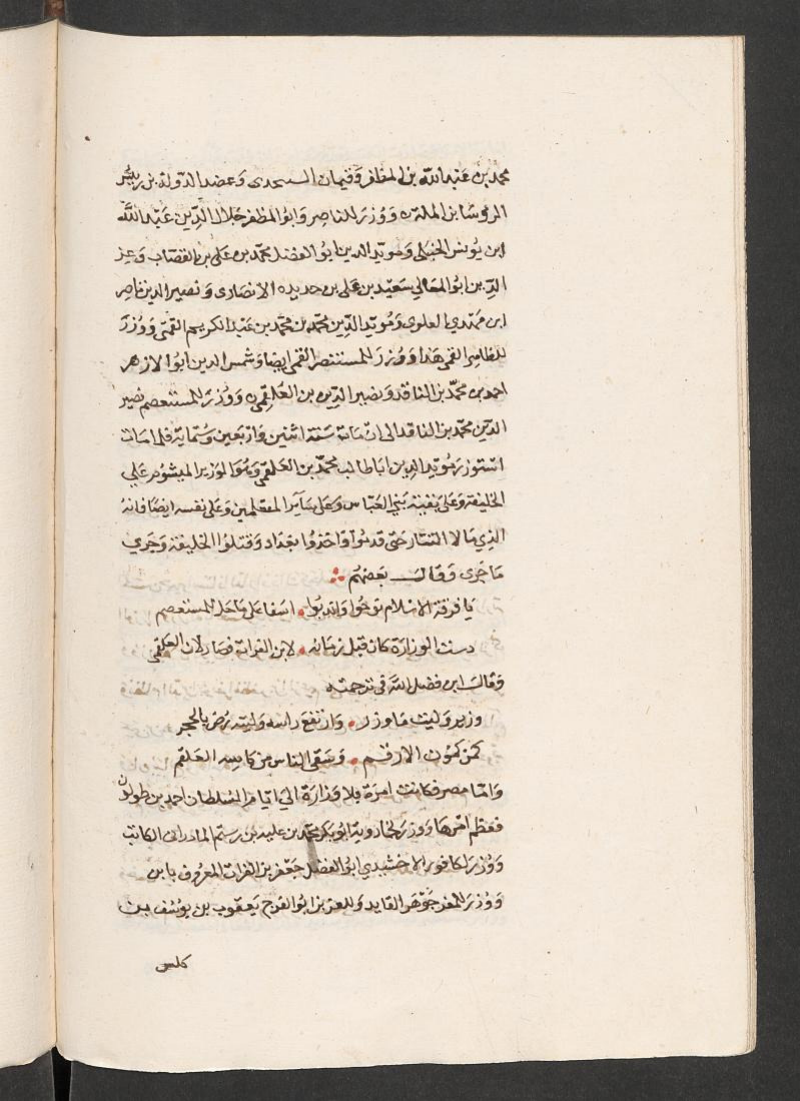 محمد بن عبد الله بن المظفر وقيمان السنجدى وعضد الدولة بن
ووزر للناصر وابوا المظفر جلال الدين عبد الله
ابن يونس الحنبلى ومويد الدين ابوا الفضل محمد بن على بن القصاب وعز
الدين ابوا المعالي سعيد بن على بن حديده الانصارى ونصير الدين ناصر
ابن مهتدي العلوى ومويد الدين محمد بن محمد بن عبد الكريم القمى ووزر
للظاهر القمى هذا ووزر للمستنصر القمى ايضا وشمس الدين ابوا الازهر
احمد بن محمد بن الناقد ونصير الدين بن العلقمى ووزر للمستعصم نصير
الدين محمد بن الناقد الى ان مات سنة اثنين واربعين وستماية فلما مات
استوزر مويد الدين اباطالب محمد بن العلقمى وهوا لوزير الميشوم على
الخليفة وعلى بقية بني العباس وعلى ساير المسلمين وعلى نفسه ايضا فانه
الذي مالا التتار حتى قدموا واخذوا بغداد وقتلوا الخليفة وجري
ما جرى وقال بعضهم
يا فرقة الاسلام نوحوا واندبوا اسفا على ما حل للمستعصم
دست الوزارة كان قبل زمانه لابن الفرات فصار لابن العلقمى
وقال ابن فضل الله فى ترجمته
وزير وليت ما وزر وارتفع راسه وليته رض بالحجر
كمن كمون الارقم وسقى الناس من كاسه العلقم
واما مصر فكانت امرة بلا وزارة الي ايام السلطان احمد بن طولون
فعظم امرها ووزر لخمارويه ابو بكر محمد بن على بن رستم المادرانى الكاتب
ووزر لكافور الاخشيدي ابوا الفضل جعفر بن الفرات المعروف بابن
ووزر للمعز جوهر القايد وللعزيز ابوا الفرج يعقوب بن يوسف بن
كلس